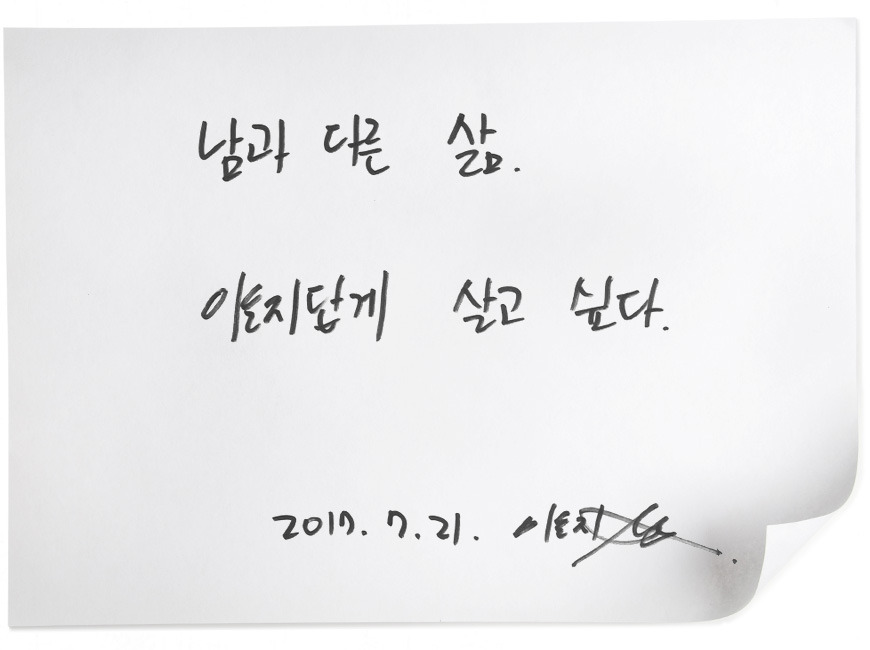 남과 다른 삶.
이토지답게 살고 싶다.
2017. 7. 21. 이토지